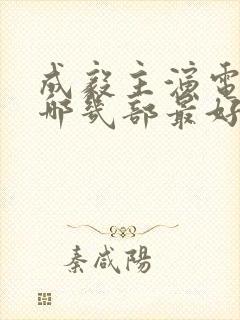 成毅主演電
哪幾部最好
秦咸陽